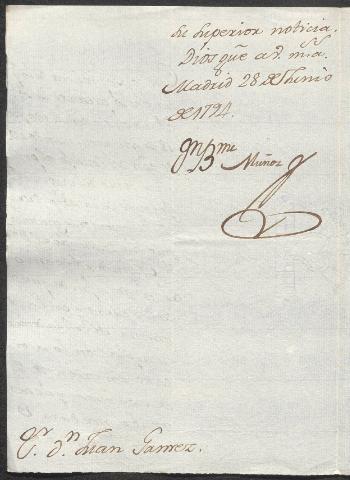 de superior noticia.
Dios gue a V. ms. as.
Madrid 28 de Junio
de 1794.
Muñoz
Sr. Dn. Juan Gamez.